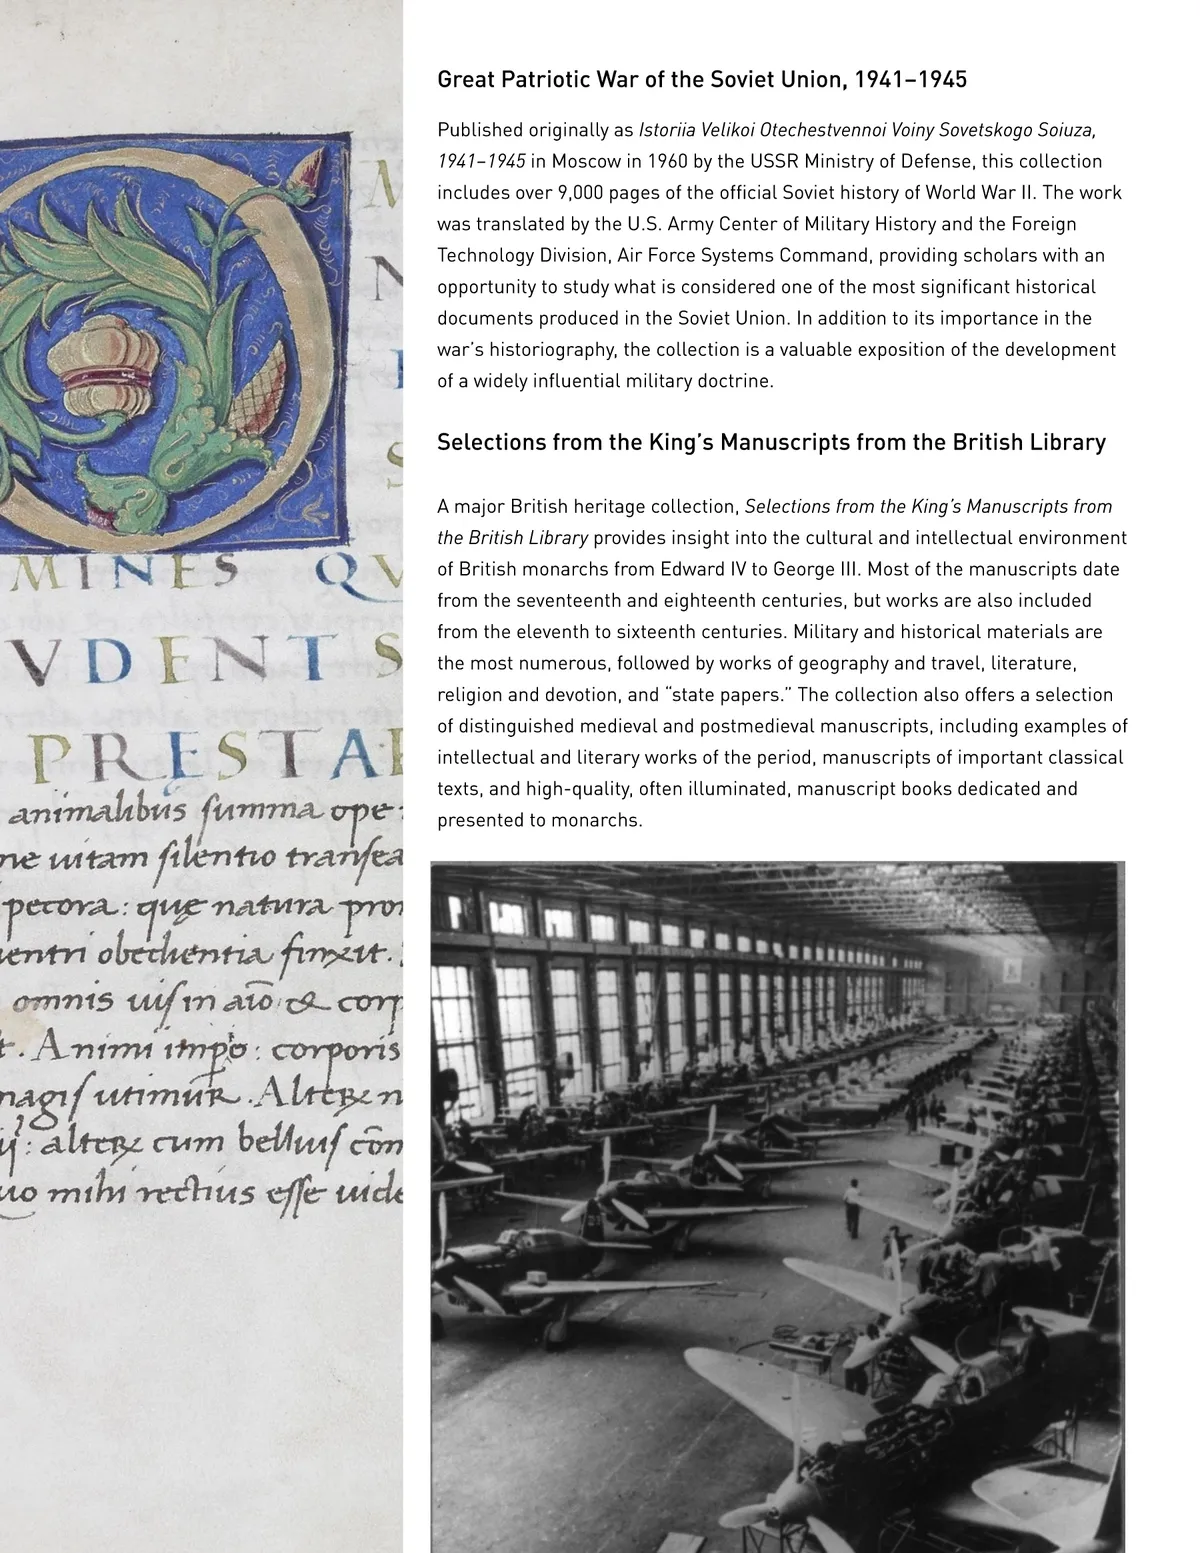 Great Patriotic War of the Soviet Union, 1941–1945
Published originally as Istoriia Velikoi Otechestvennoi Voiny Sovetskogo Soiuza,
1941–1945 in Moscow in 1960 by the USSR Ministry of Defense, this collection
includes over 9,000 pages of the official Soviet history of World War II. The work
was translated by the U.S. Army Center of Military History and the Foreign
Technology Division, Air Force Systems Command, providing scholars with an
opportunity to study what is considered one of the most significant historical
documents produced in the Soviet Union. In addition to its importance in the
war’s historiography, the collection is a valuable exposition of the development
of a widely influential military doctrine.
Selections from the King’s Manuscripts from the British Library
A major British heritage collection, Selections from the King’s Manuscripts from
the British Library provides insight into the cultural and intellectual environment
of British monarchs from Edward IV to George III. Most of the manuscripts date
from the seventeenth and eighteenth centuries, but works are also included
from the eleventh to sixteenth centuries. Military and historical materials are
the most numerous, followed by works of geography and travel, literature,
religion and devotion, and “state papers.” The collection also offers a selection
of distinguished medieval and postmedieval manuscripts, including examples of
intellectual and literary works of the period, manuscripts of important classical
texts, and high-quality, often illuminated, manuscript books dedicated and
presented to monarchs.
MINES QV
VDENT S
PRESTAR
animalibus summa ope
ne uitam silentio transea
pecora: quę natura pro
uentri obedientia finxit.
omnis uis in aīo & corp
t. Animi impō: corporis
magis utimur. Alterꝝ n
alterꝝ cum belluis cōm
uo mihi rectius esse uide